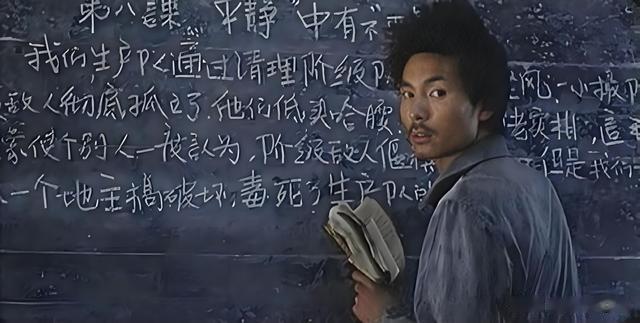 第八課 平静"中有"不
我们生产队通过清理阶级队 风.一小撮阶
敌人彻底孤立了.他们低头哈腰 老实排,這
象使个别人一被認为,阶级敌人 但是我们一
一个地主搞破坏,毒死了生产队的